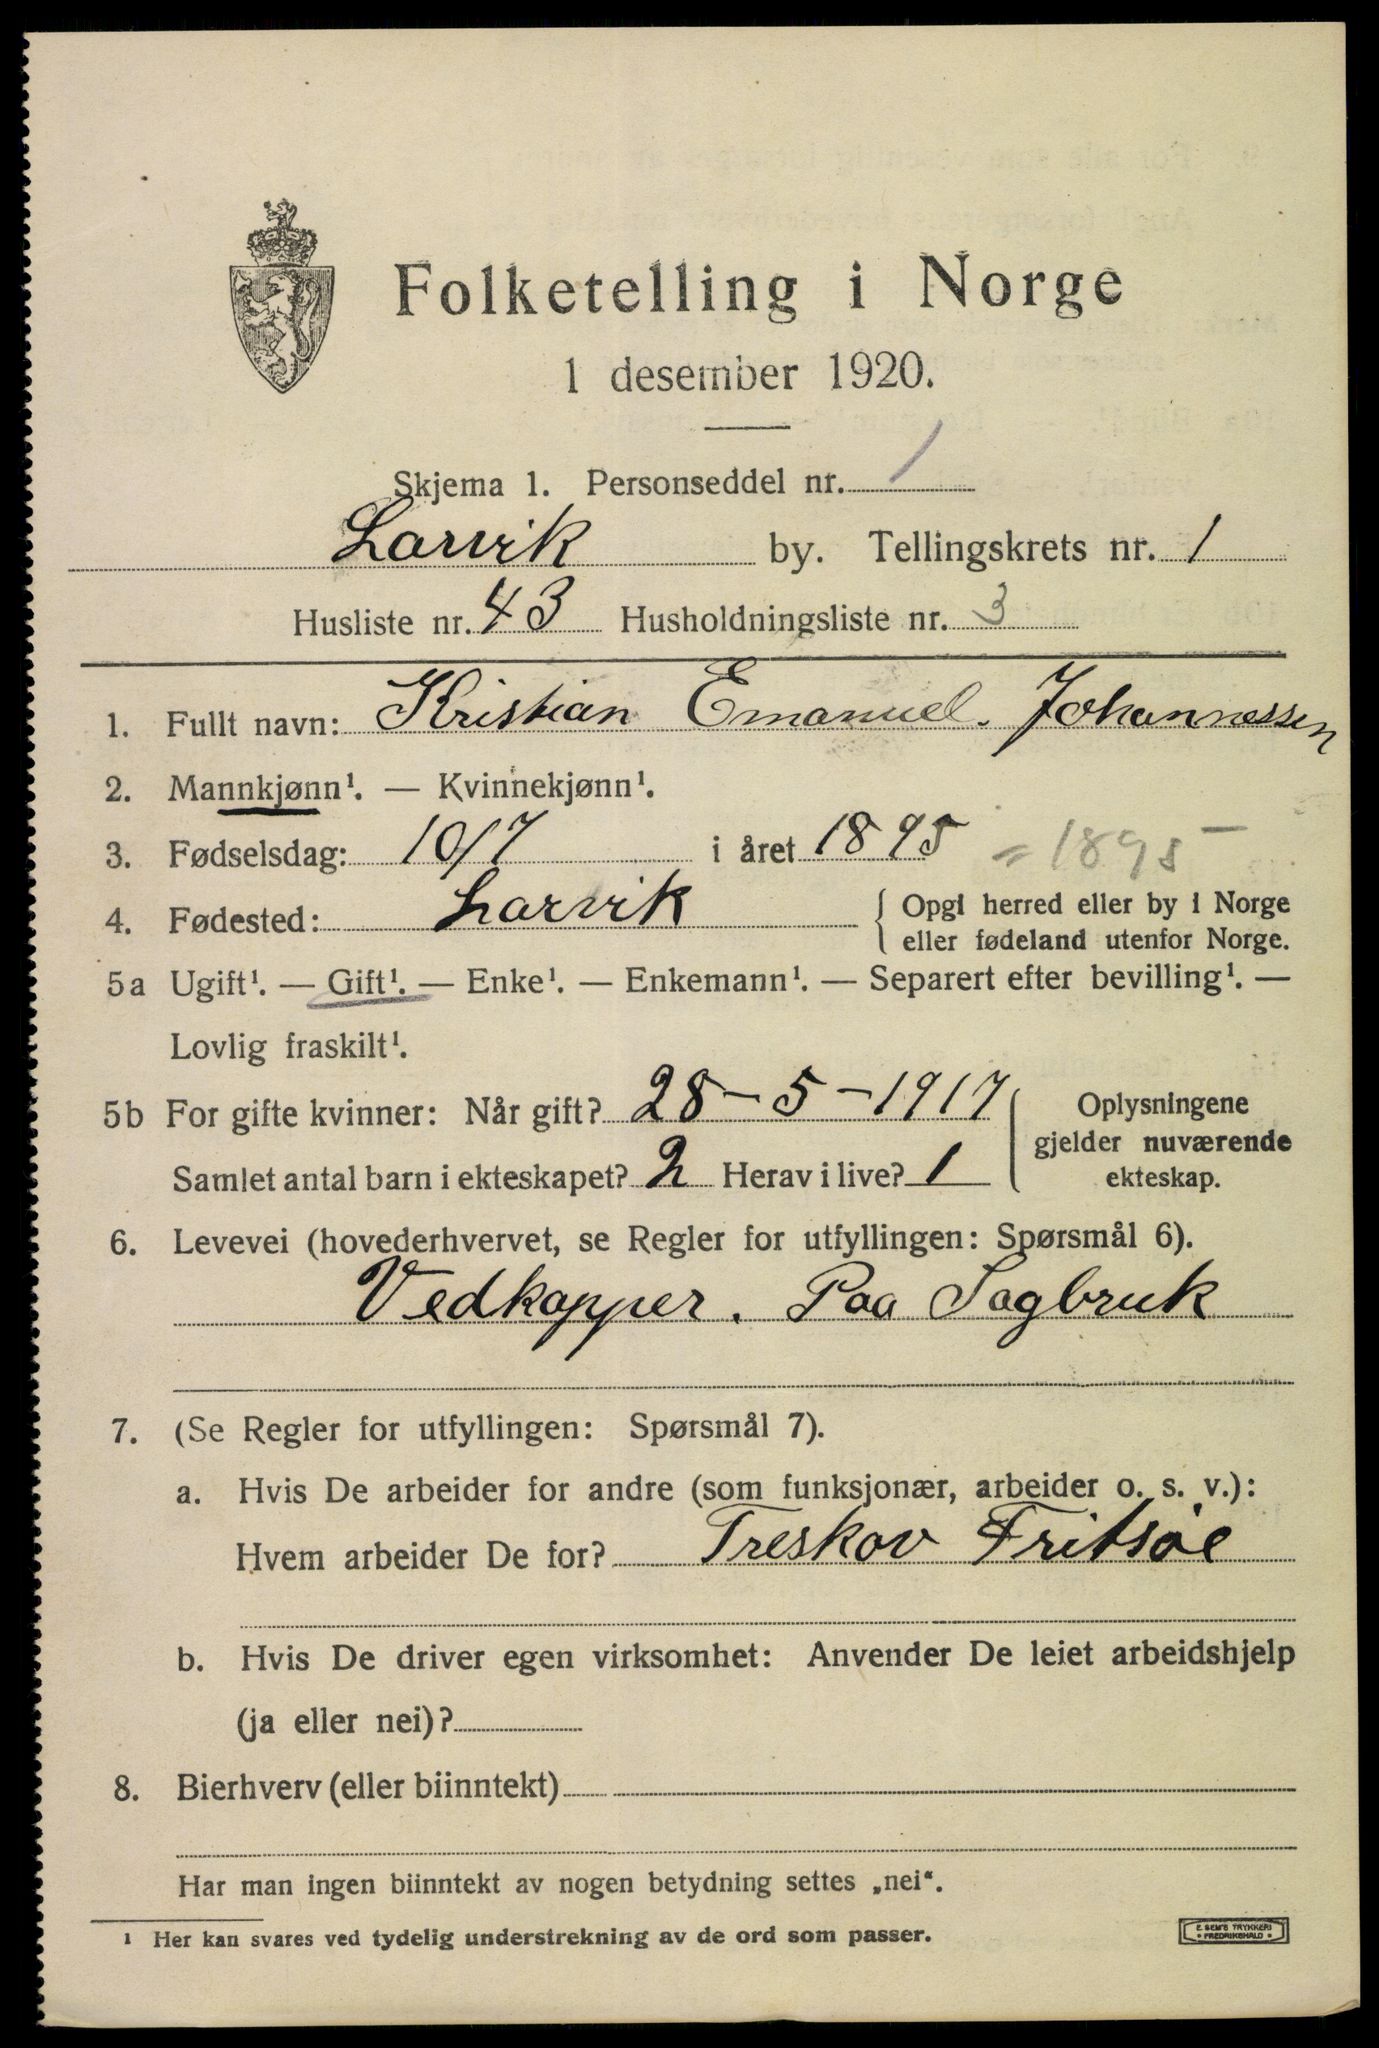 Folketelling i Norge
1 desember 1920.
Skjema 1. Personseddel nr. 1
Larvik by. Tellingskrets nr. 1
Husliste nr. 43 Husholdningsliste nr. 3
1. Fullt navn: Kristian Emanuel. Johannessen
2. Mannkjønn¹. — Kvinnekjønn¹.
3. Fødselsdag: 10/7 i året 1895 = 1895
4. Fødested: Larvik { Opgi herred eller by i Norge
eller fødeland utenfor Norge.
5a Ugift¹. — Gift¹. — Enke¹. — Enkemann¹. — Separert efter bevilling¹. —
Lovlig fraskilt¹.
5b For gifte kvinner: Når gift? 28-5-1917 Oplysningene
gjelder nuværende
Samlet antal barn i ekteskapet? 2 Herav i live? 1 ekteskap.
6. Levevei (hovederhvervet, se Regler for utfyllingen: Spørsmål 6).
Vedkapper. Paa Sagbruk
7. (Se Regler for utfyllingen: Spørsmål 7).
a. Hvis De arbeider for andre (som funksjonær, arbeider o. s. v.):
Hvem arbeider De for? Treskov Fritsøe
b. Hvis De driver egen virksomhet: Anvender De leiet arbeidshjelp
(ja eller nei)?
8. Bierhverv (eller biinntekt)
Har man ingen biinntekt av nogen betydning settes „nei“.
¹ Her kan svares ved tydelig understrekning av de ord som passer.
E. SEM'S TRYKKERI
• FREDRIKSHALD •